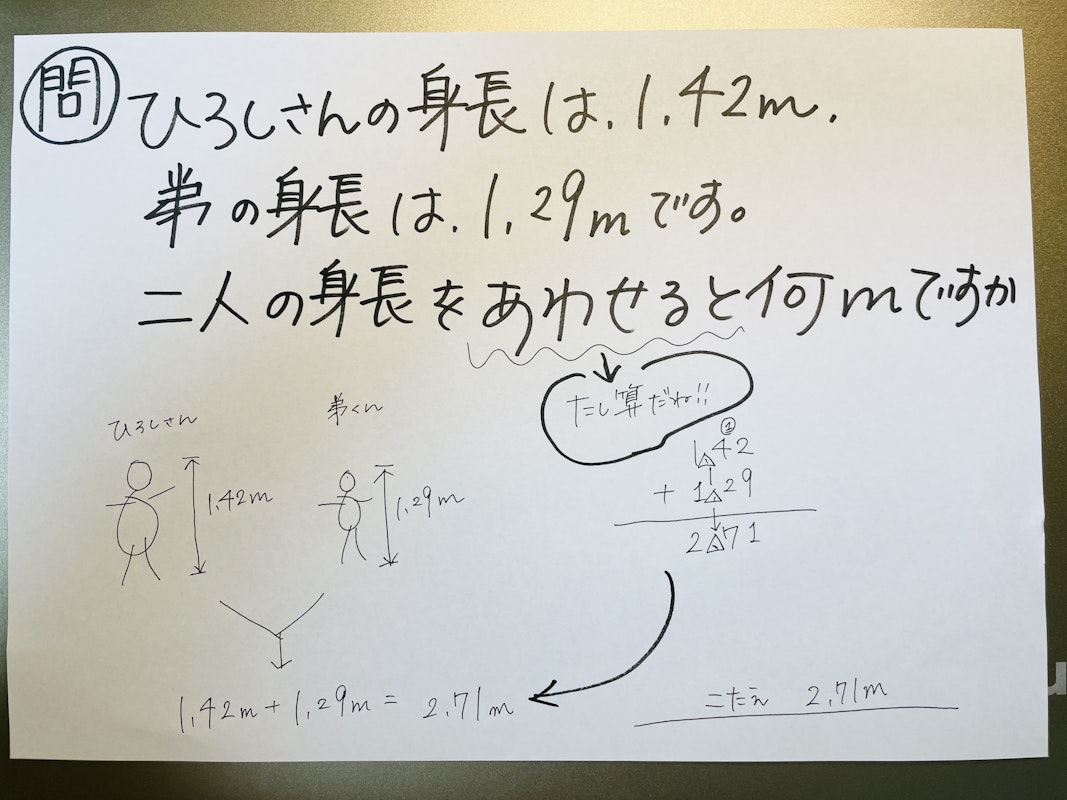 問 ひろしさんの身長は、1.42m、
弟の身長は、1.29mです。
二人の身長をあわせると何mですか
たし算だね!!
ひろしさん
弟くん
1.42m
1.29m
①
1.42
+ 1.29
2.71
1.42m + 1.29m = 2.71m
こたえ 2.71m